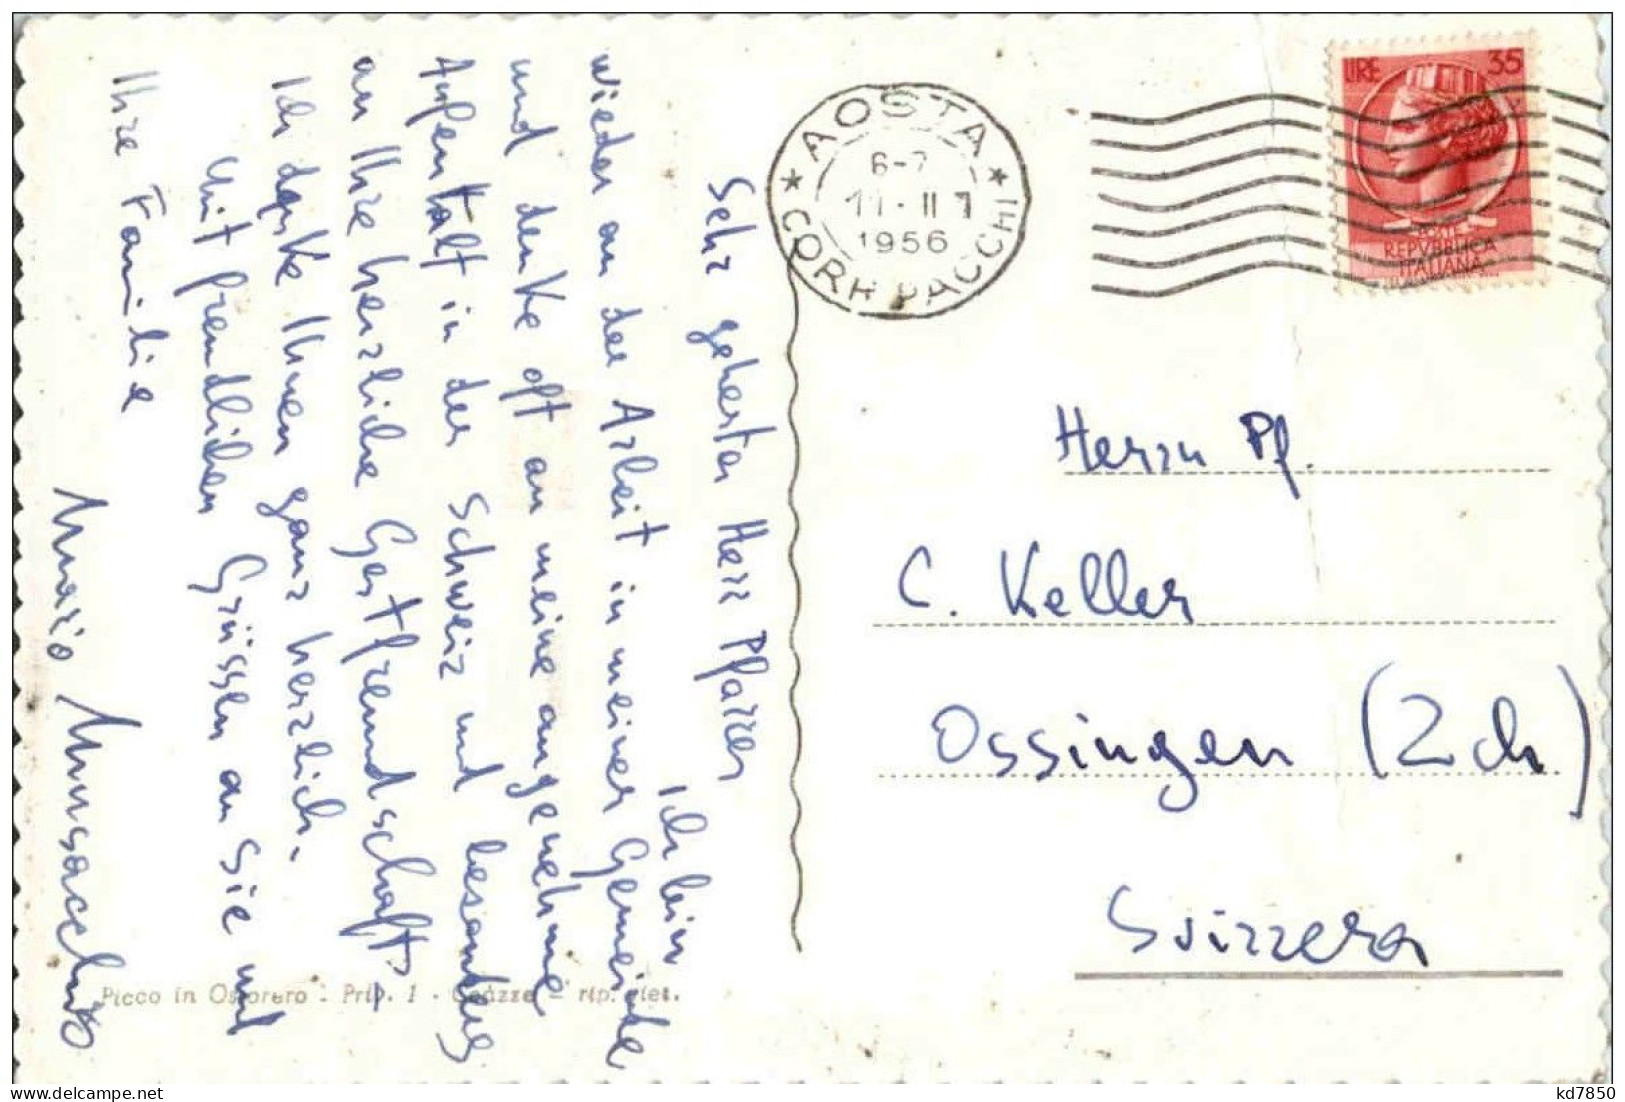 Sehr geherter Herr Pfarrer
Ich bin
wieder an der Arbeit in meiner Gemeinde
und denke oft an meine angenehme
Aufenthalt in der Schweiz und besonders
an Ihre herzliche Gastfreundschaft.
Ich danke Ihnen ganz herzlich.
Mit freundlichen Grüssen an Sie und
Ihre Familie
Mario
AOSTA
6-7
11·II
1956
CORR PACCHI
LIRE 35
POSTE
REPVBBLICA
ITALIANA
Herrn Pf.
C. Keller
Ossingen (Zch)
Svizzera
Picco in Osporero - Prip. 1 - rip. viet.
delcampe.net
kd7850